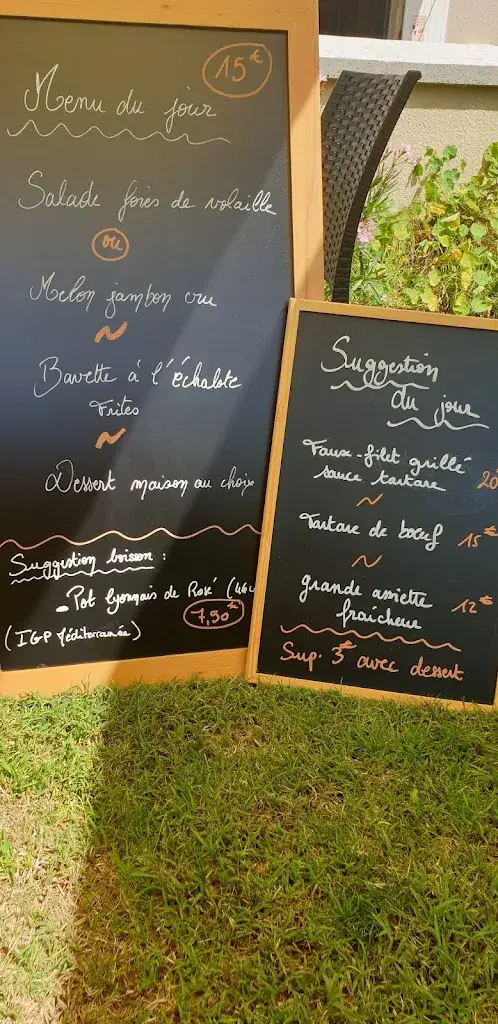 15€
Menu du jour
Salade foies de volaille
ou
Melon jambon cru
~
Bavette à l'échalote
Frites
~
Dessert maison au choix
Suggestion boisson :
- Pot lyonnais de Rosé (46c
7,50€
(IGP Méditerranée)
Suggestion
du jour
Faux-filet grillé
sauce tartare 20
~
Tartare de bœuf 15€
~
grande assiette
fraîcheur 12€
Sup. 3€ avec dessert